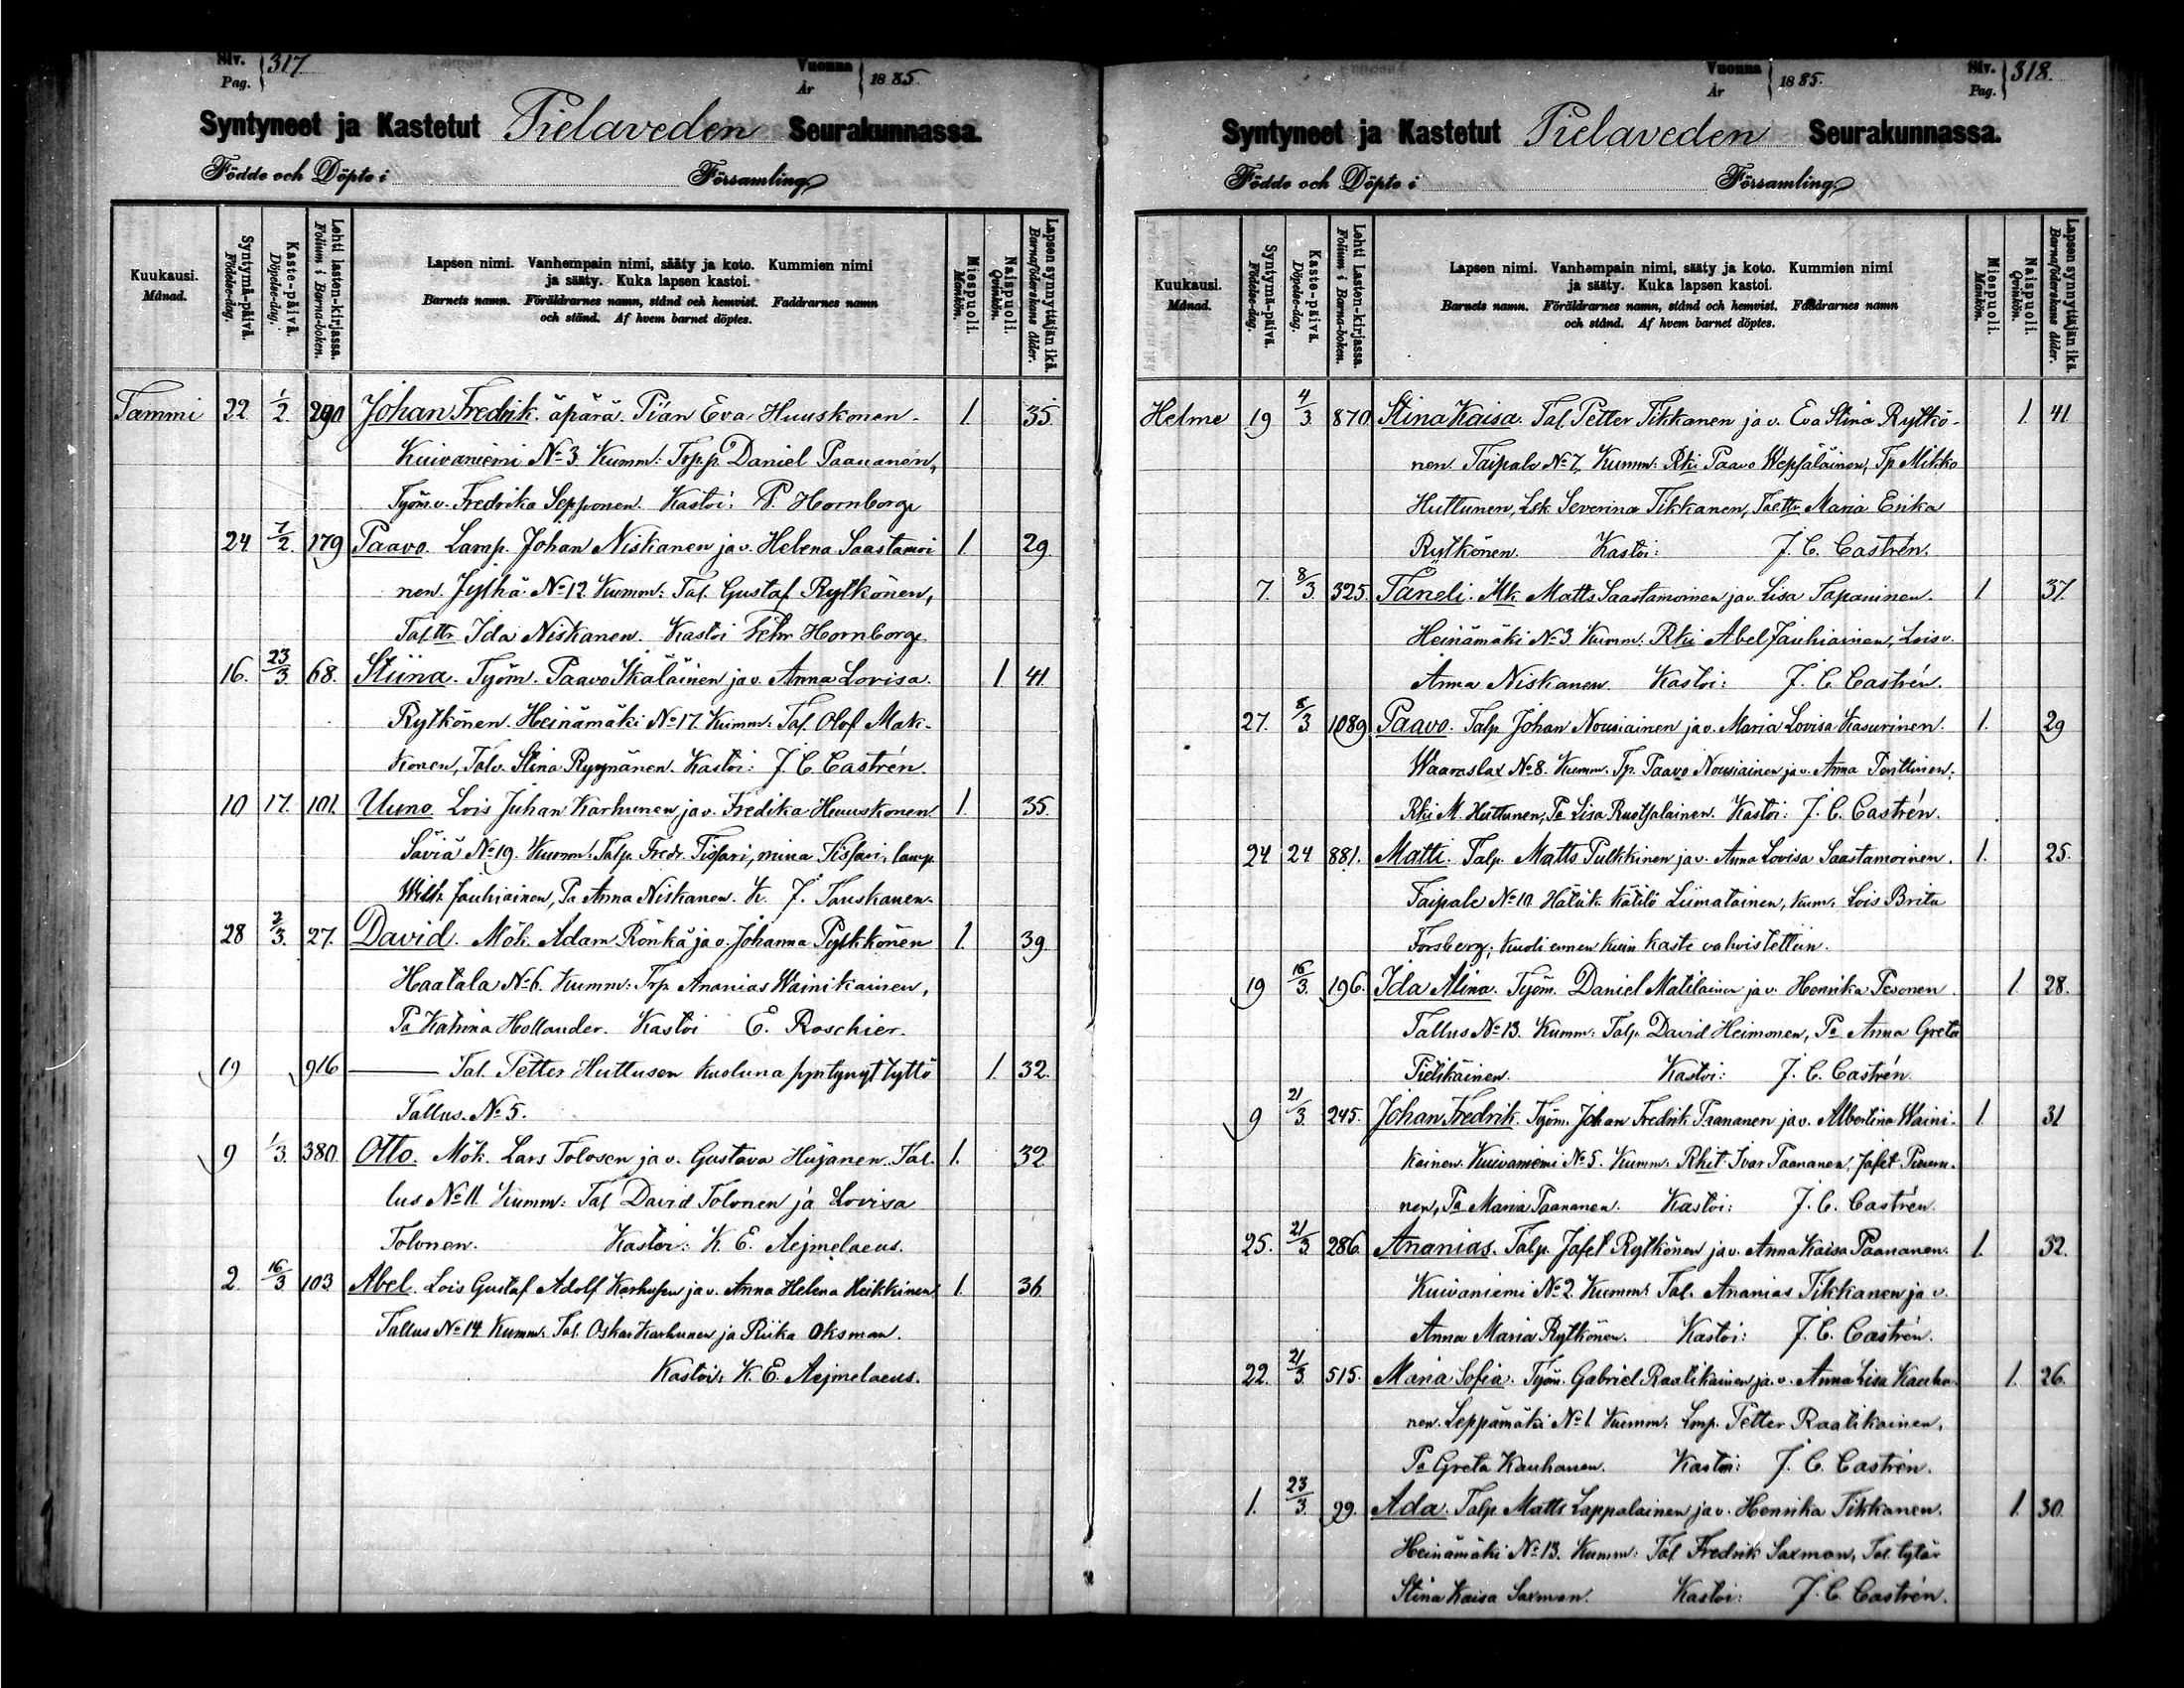 Siv. Pag. } 317.
Vuonna År } 1885.
Syntyneet ja Kastetut Pielaveden Seurakunnassa.
Födde och Döpte i Församling
Kuukausi. Månad.
Syntymä-päivä. Födelse-dag.
Kaste-päivä. Döpelse-dag.
Lehti lasten-kirjassa. Folium i Barna-boken.
Lapsen nimi. Vanhempain nimi, sääty ja koto. Kummien nimi
ja sääty. Kuka lapsen kastoi.
Barnets namn. Föräldrarnes namn, stånd och hemvist. Faddrarnes namn
och stånd. Af hvem barnet döptes.
Miespuoli. Mankön.
Naispuoli. Qvinkön.
Lapsen synnyttäjän ikä. Barnaföderskans ålder.
Tammi 22 1/2. 290 Johan Fredrik. äpärä. Pian Eva Huuskonen- 1. 35.
Kuivaniemi No 3. Kumm: Trp.p. Daniel Paananen,
Työm.v. Fredrika Sepponen. Kastoi: P. Hornborg
24 7/2. 179 Paavo. Lamp. Johan Niskanen ja v. Helena Saastamoi 1. 29.
nen. Jylhä No 12. Kumm: Tal. Gustaf Rytkönen,
Tal.ttr Ida Niskanen. Kastoi Fehr Hornborg
16. 23/3. 68. Stiina. Työm. Paavo Ikäläinen ja v. Anna Lovisa. 1 41.
Rytkönen. Heinämäki No 17. Kumm: Tal. Olof Mak-
konen, Talv. Stina Ryynänen. Kastoi: J. C. Castrén.
10 17. 101. Uuno. Lois Juhan Karhunen ja v. Fredika Huuskonen. 1. 35.
Säviä No 19. Kumm: Talp. Fredr. Tissari, mina Tissari, lamp.
Wilh. Jauhiainen, Pa Anna Niskanen. K. J. Tauskanen.
28 2/3. 27. David. Mök. Adam Rönkä ja v. Johanna Pylkkönen 1. 39.
Haatala No 6. Kumm: Trp. Ananias Wainikainen,
Pa Katrina Hollander. Kastoi E. Roschier.
19 916 — Tal. Petter Huttusen kuoluna syntynyt tyttö 1. 32.
Tallus. No 5.
9 1/3. 380. Otto. Mök. Lars Tolosen ja v. Gustava Hujanen. Tal- 1. 32
lus No 11. Kumm: Tal David Tolonen ja Lovisa
Tolonen. Kastoi: K. E. Aejmelaeus.
2. 16/3 103 Abel. Lois Gustaf Adolf Karhusen ja v. Anna Helena Heikkinen 1. 36
Tallus No 14. Kumm: Tal. Oskar Karhunen ja Riika Oksman.
Kastoi: K. E. Aejmelaeus.
Vuonna År } 1885.
Siv. Pag. } 318.
Syntyneet ja Kastetut Pielaveden Seurakunnassa.
Födde och Döpte i Församling
Kuukausi. Månad.
Syntymä-päivä. Födelse-dag.
Kaste-päivä. Döpelse-dag.
Lehti lasten-kirjassa. Folium i Barna-boken.
Lapsen nimi. Vanhempain nimi, sääty ja koto. Kummien nimi
ja sääty. Kuka lapsen kastoi.
Barnets namn. Föräldrarnes namn, stånd och hemvist. Faddrarnes namn
och stånd. Af hvem barnet döptes.
Miespuoli. Mankön.
Naispuoli. Qvinkön.
Lapsen synnyttäjän ikä. Barnaföderskans ålder.
Helme 19 4/3. 870. Stina Kaisa. Tal. Petter Tikkanen ja v. Eva Stina Rytkö- 1. 41.
nen. Taipale No 7. Kumm: Rki Paavo Wepsäläinen, Tp Mikko
Huttunen, Lsk Severina Tikkanen, Tal.ttr Maria Erika
Rytkönen. Kastoi: J. C. Castrén.
7. 8/3. 325. Taneli. Mk. Matts Saastamoinen ja v. Lisa Tapaninen. 1 37.
Heinämäki No 3 Kumm: Rki Abel Jauhiainen, Lois v.
Anna Niskanen. Kastoi: J. C. Castrén.
27. 8/3 1089. Paavo. Talp. Johan Nousiainen ja v. Maria Lovisa Kasurinen. 1. 29
Waaraslax No 8. Kumm. Tp. Paavo Nousiainen ja v. Anna Penttinen,
Rki M. Huttunen, Pa Lisa Ruotsalainen. Kastoi: J. C. Castrén.
24 24 881. Matti. Talp. Matts Pulkkinen ja v. Anna Lovisa Saastamoinen. 1. 25.
Taipale No 10. Hätäk. Kätilö Liimatainen, kum. Lois Brita
Forsberg; kuoli ennen kuin kaste vahvistettiin.
19 16/3. 196. Ida Alina. Työm. Daniel Matilainen ja v. Henrika Pesonen. 1. 28.
Tallus No 13. Kumm: Talp. David Heimonen, Pa Anna Greta
Pietikäinen. Kastoi: J. C. Castrén.
9 21/3. 245. Johan Fredrik. Työm. Johan Fredrik Paananen ja v. Albertina Waini- 1. 31
kainen. Kuivaniemi No 5. Kumm: Rkit Ivar Paananen, Jafet
nen, Pa Maria Paananen. Kastoi: J. C. Castrén.
25. 21/3. 286. Ananias. Talp. Jafet Rytkönen ja v. Anna Kaisa Paananen. 1. 32.
Kuivaniemi No 2. Kumm: Tal. Ananias Tikkanen ja v.
Anna Maria Rytkönen. Kastoi: J. C. Castrén.
22. 21/3. 515. Maria Sofia. Työm. Gabriel Raatikainen ja v. Anna Lisa Kauha- 1. 26.
nen. Leppämäki No 1. Kumm: Lmp. Petter Raatikainen,
Pa Greta Kauhanen. Kastoi: J. C. Castrén.
1. 23/3. 29. Ada. Talp. Matts Lappalainen ja v. Henrika Tikkanen. 1. 30.
Heinämäki No 13. Kumm: Tal Fredrik Saxman, Tal. tytär
Stina Kaisa Saxman. Kastoi: J. C. Castrén.